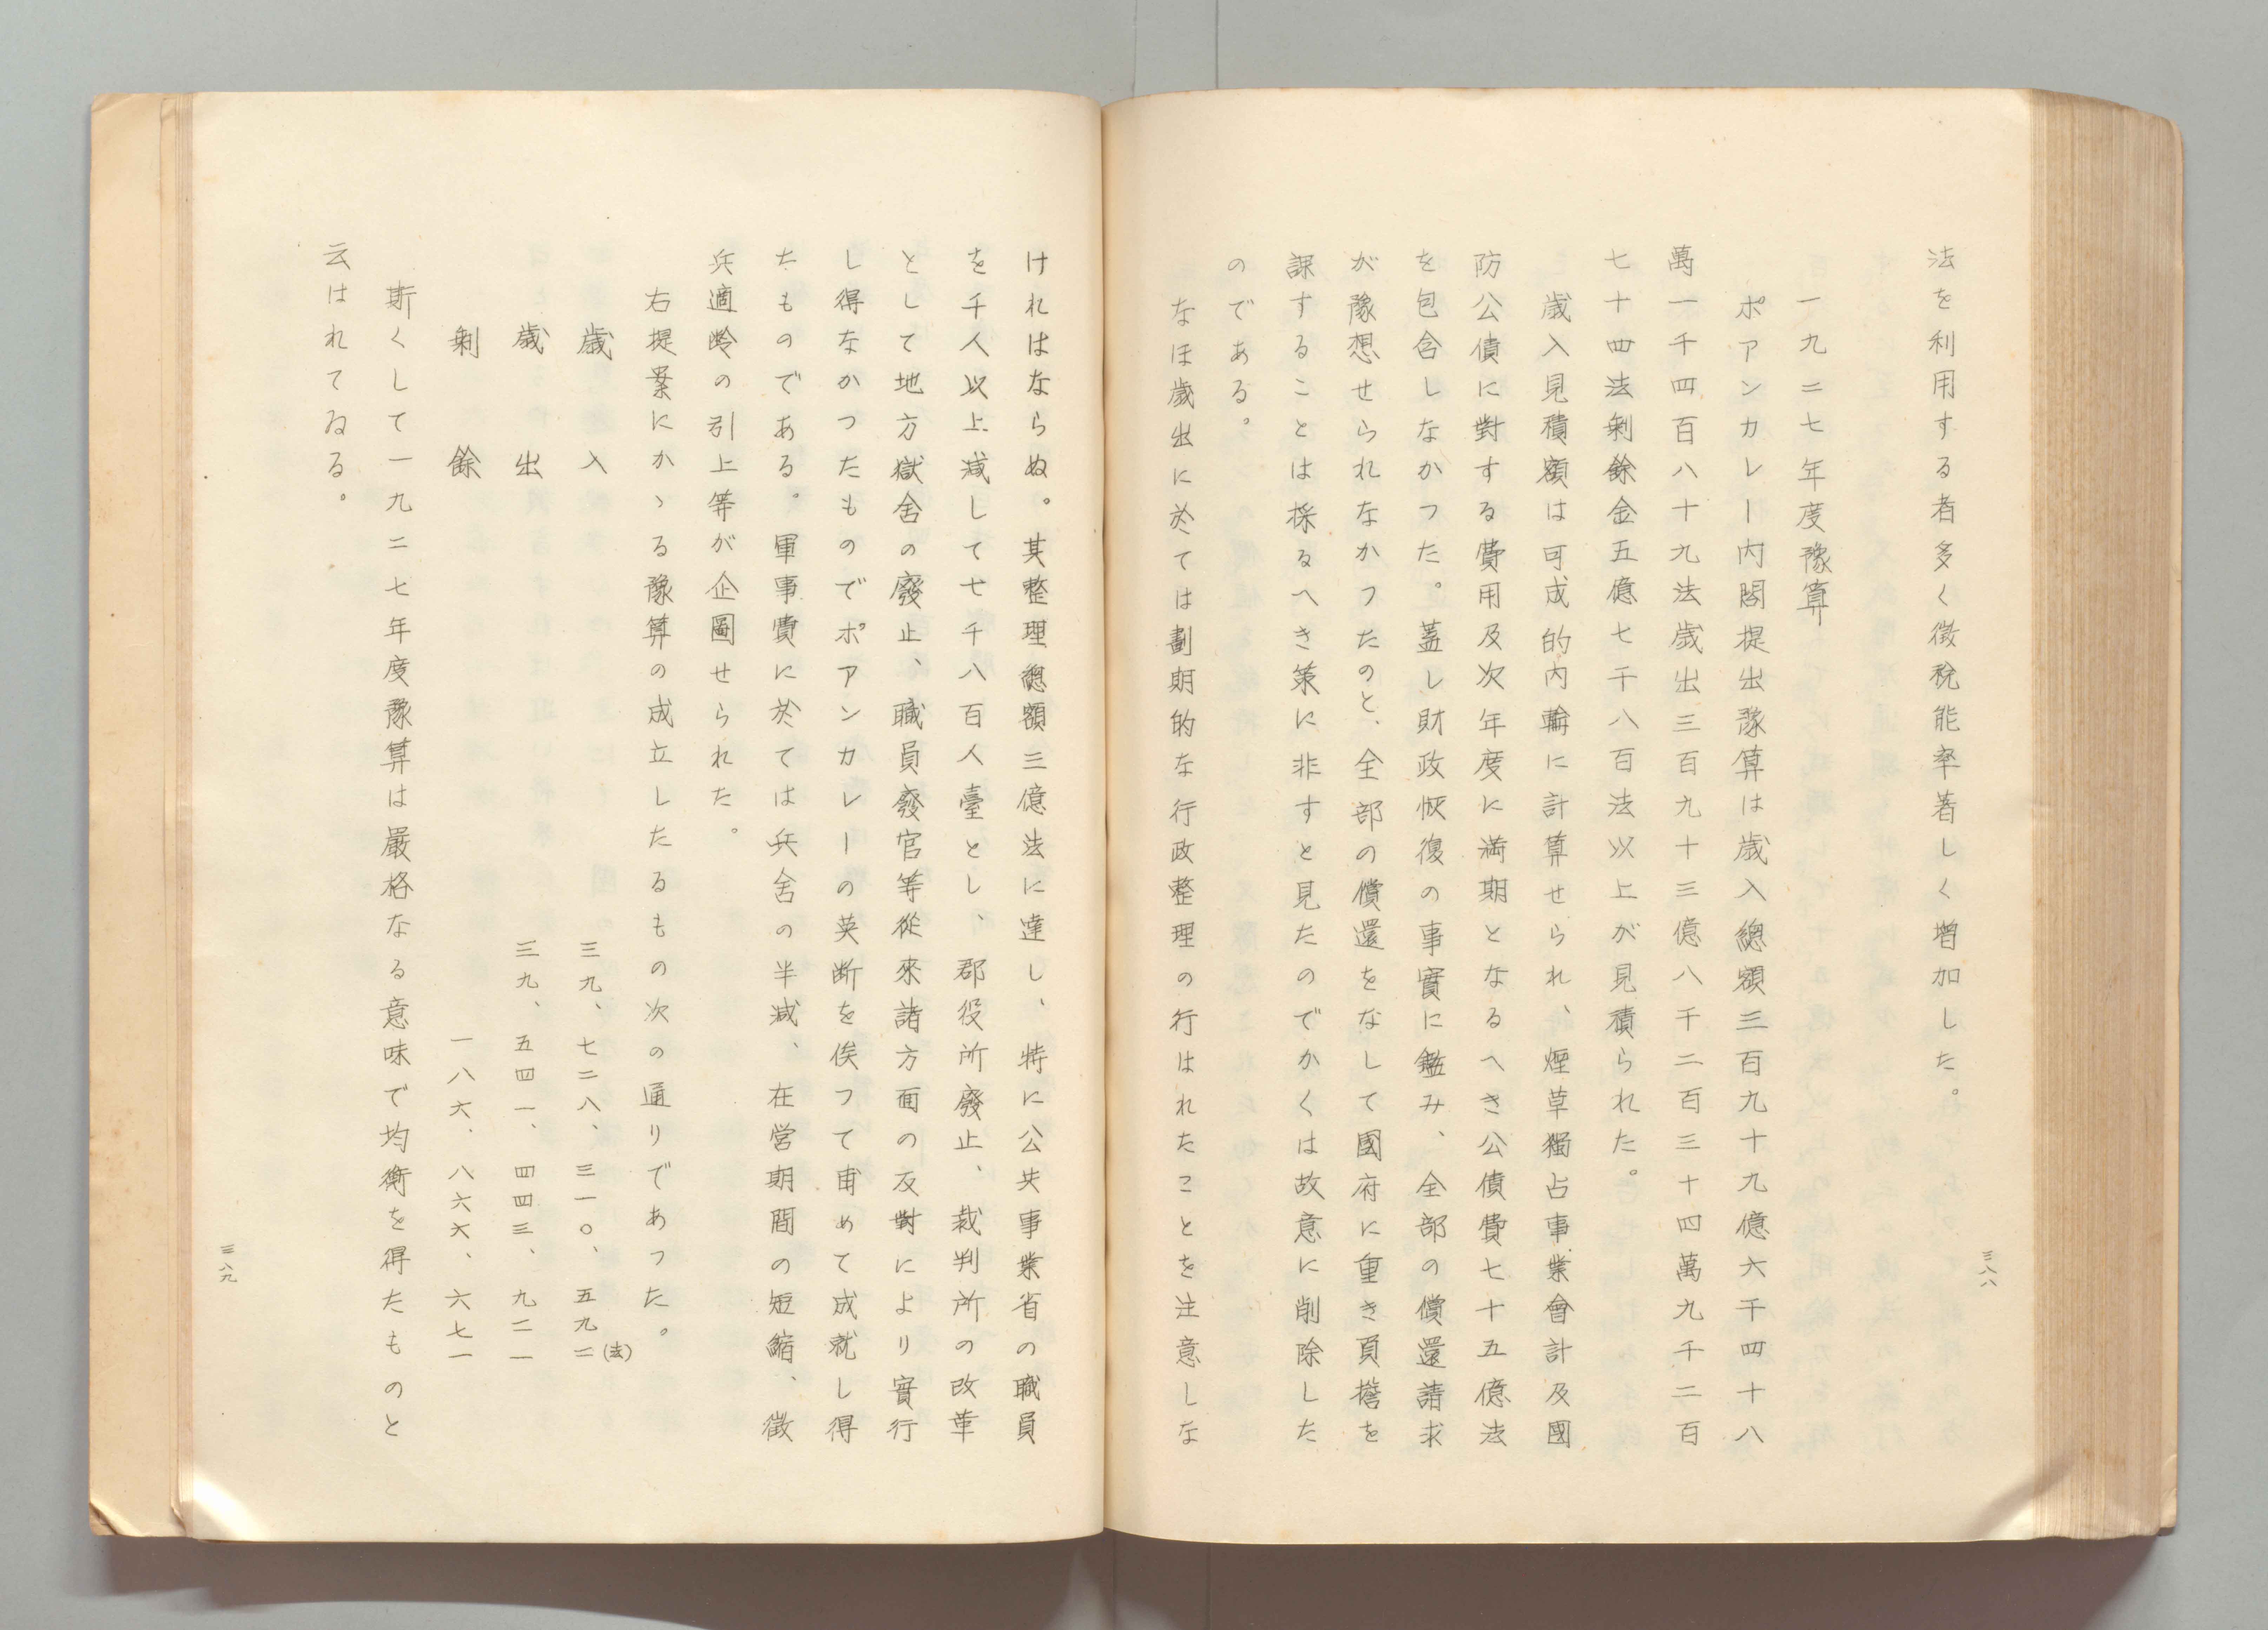 法を利用する者多く徴税能率著しく増加した。
一九二七年度豫算
ポアンカレー内閣提出豫算は歳入總額三百九十九億六千四十八
萬一千四百八十九法歳出三百九十三億八千二百三十四萬九千二百
七十四法剰餘金五億七千八百法以上が見積られた。
歳入見積額は可成的内輪に計算せられ、煙草獨占事業會計及國
防公債に對する費用及次年度に満期となるへき公債費七十五億法
を包含しなかつた。蓋し財政恢復の事實に鑑み、全部の償還請求
が豫想せられなかつたのと、全部の償還をなして國府に重き負擔を
課することは採るへき策に非すと見たのでかくは故意に削除した
のである。
なほ歳出に於ては劃期的な行政整理の行はれたことを注意しな
三八八
けれはならぬ。其整理總額三億法に達し、特に公共事業省の職員
を千人以上減して七千八百人臺とし、郡役所廢止、裁判所の改革
として地方獄舎の廢止、職員廢官等從來諸方面の反對により實行
し得なかつたものでポアンカレーの英断を俟つて甫めて成就し得
たものである。軍事費に於ては兵舎の半減、在営期間の短縮、徴
兵適齢の引上等が企圖せられた。
右提案にかゝる豫算の成立したるもの次の通りであつた。
歳入 三九、七二八、三一〇、五九二(法)
歳出 三九、五四一、四四三、九二一
剰餘 一八六、八六六、六七一
斯くして一九二七年度豫算は嚴格なる意味で均衡を得たものと
云はれてゐる。
三八九